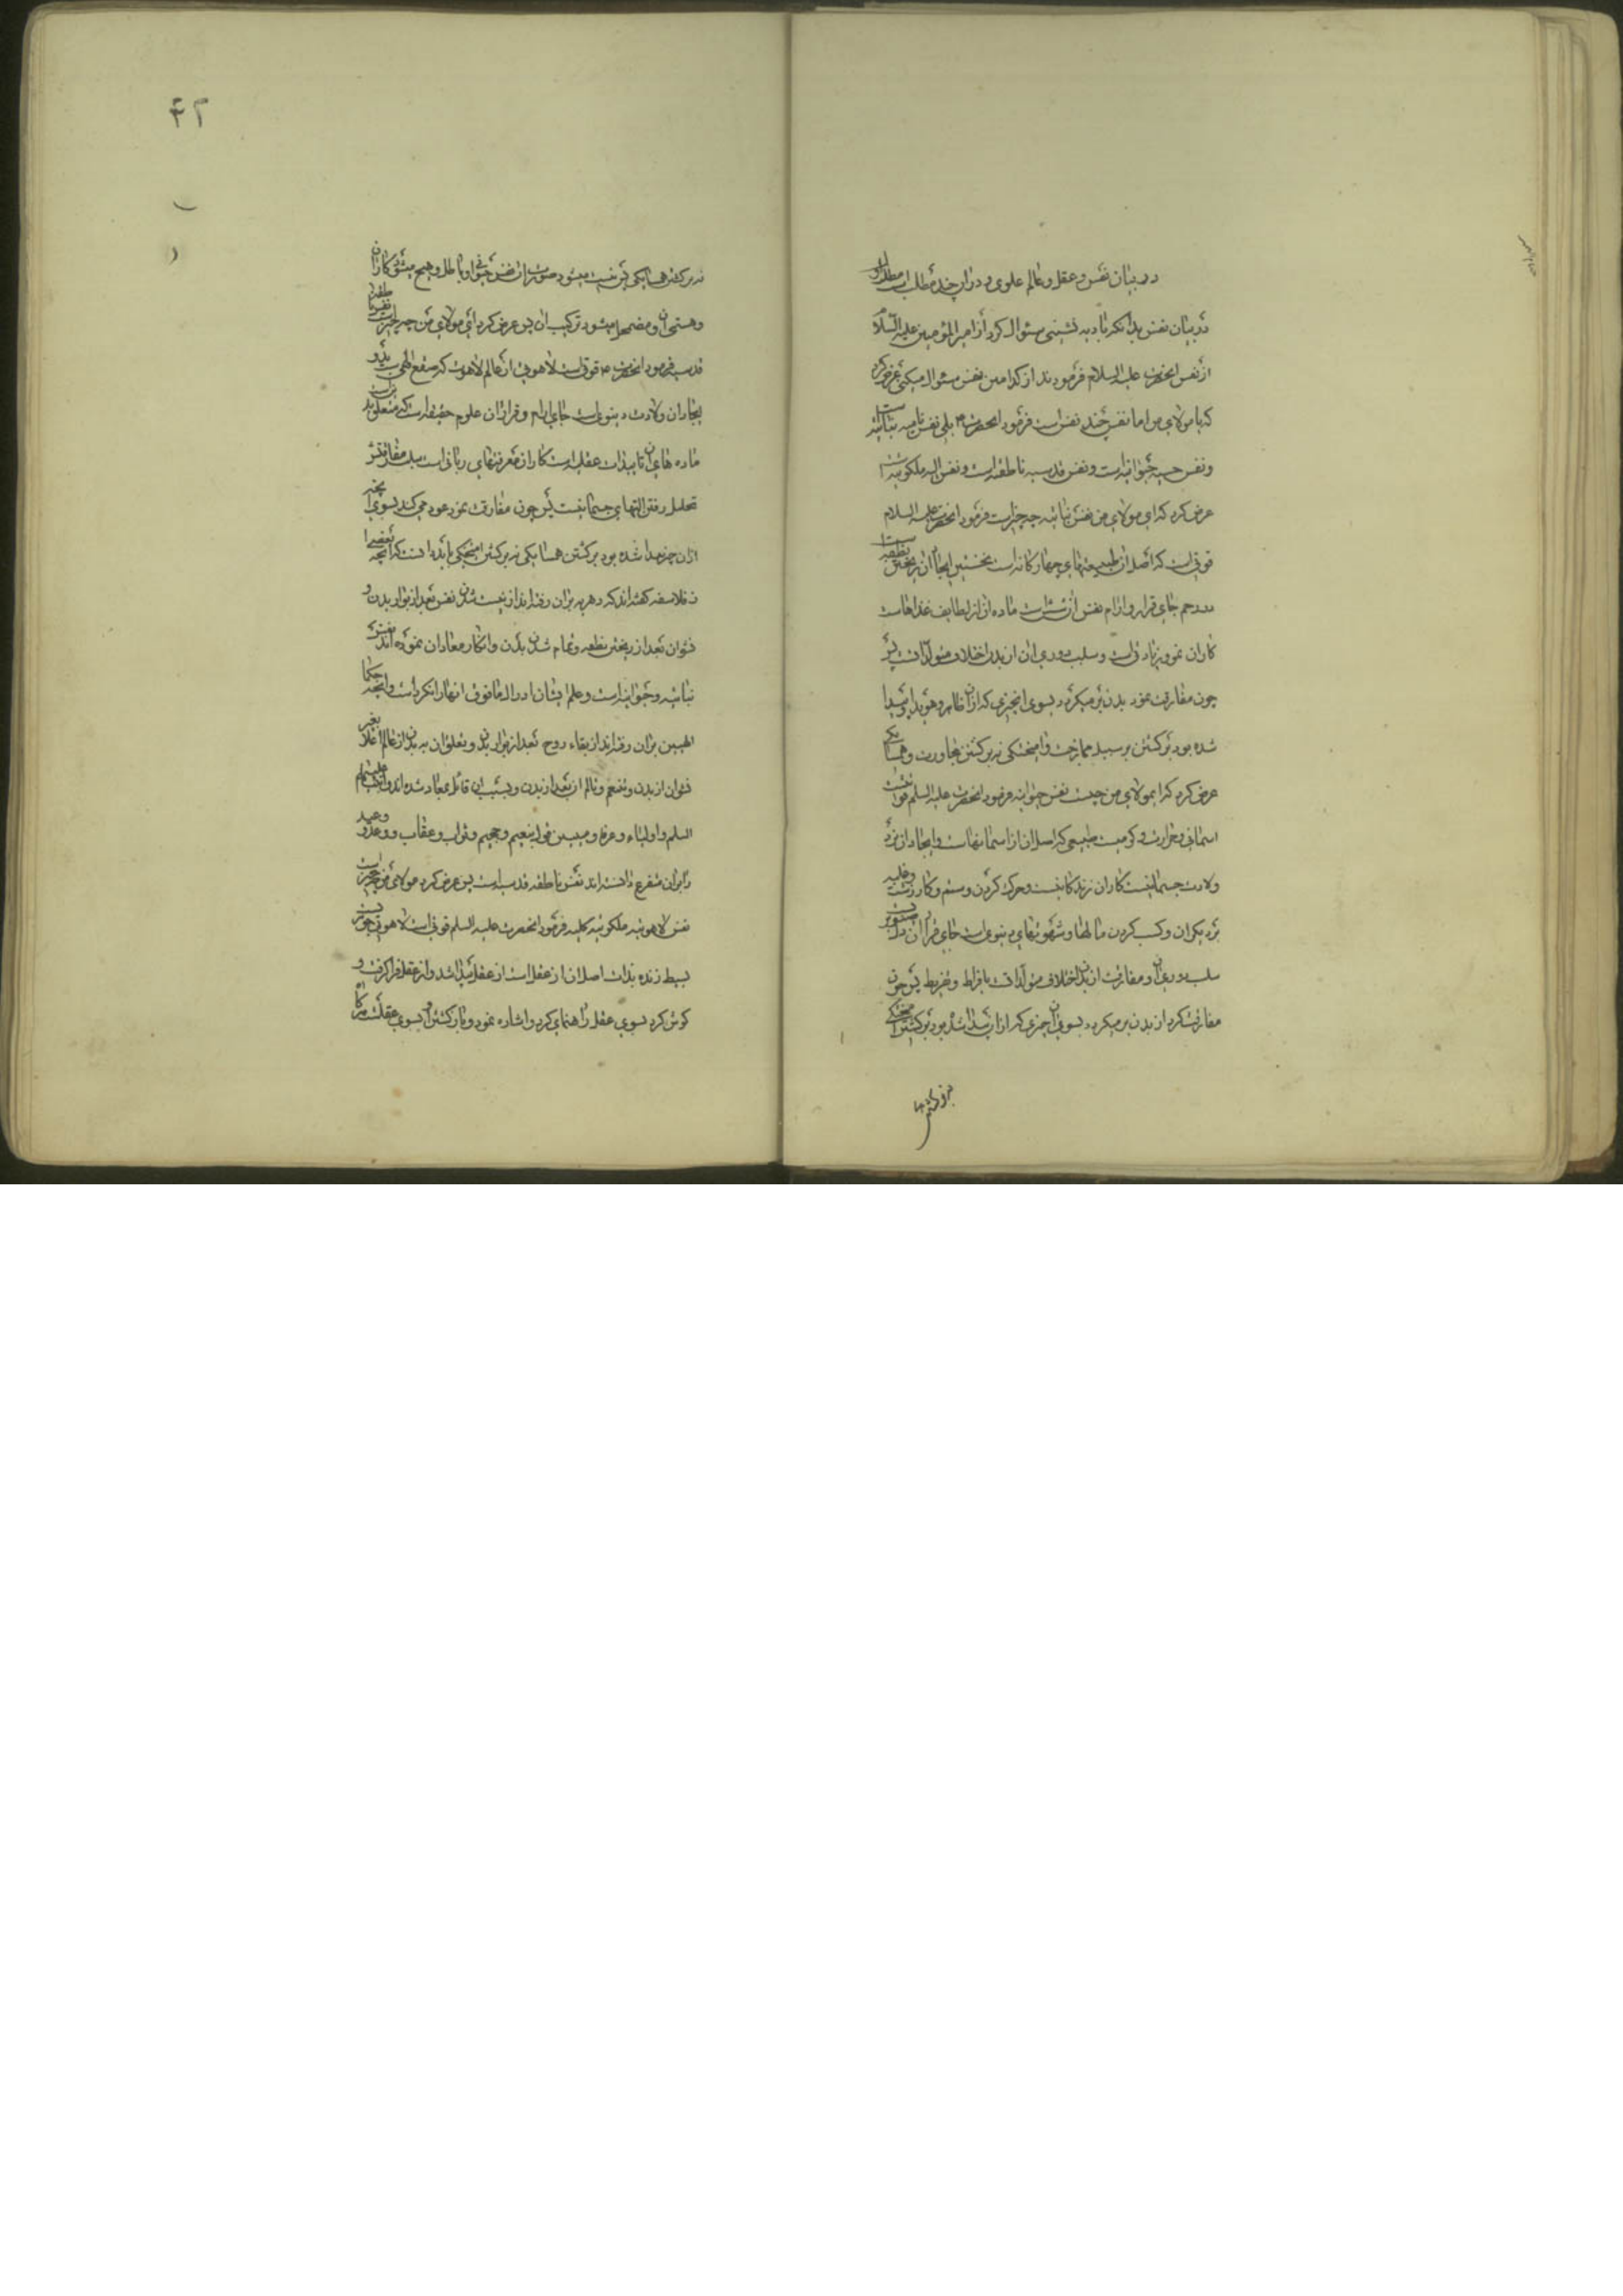 در بیان نفس و عقل و عالم علوی و در آن چند مطلب است مطلب اول
در بیان نفس بدانکه بادیه نشینی سئوال کرد از امیر المؤمنین علیه السلام
از نفس انحضرت علیه السلام فرمودند از کدامین نفس سئوال میکنی عرض کرد
که یا مولای من اما نفس چند نفس است فرمود انحضرت بلی نفس نامیه نباتیه است
و نفس حسیه حیوانیه است و نفس قدسیه ناطقه است و نفس الهیه ملکوتیه است
عرض کرد که ای مولای من نفس نباتیه چه چیز است فرمود انحضرت علیه السلام
قوتی است که اصل ان طبیعتهای چهارکانه است نخستین ایجاد ان ریختن نطفه است
در رحم جای قرار و ارام نفس ان ماده ان از لطایف غذاهاست
کار ان نمو و زیادتی است و سبب دوری ان از بدن اختلاف متولداتست پس
چون مفارقت نمود بدن بر میکردد بسوی انچیزی که از ان ظاهر و هویدا و پیدا
شده بود برکشتن بر سبیل ممازجت و امیختکی نه برکشتن مجاورت و همسایکی
عرض کرد که ایمولای من چیست نفس حیوانیه فرمود انحضرت علیه السلم قوتی است
اسمانی و حرارت و کرمیست طبیعی که اصل ان از اسمانهاست و ایجاد ان نزد
ولادت جسمانیست کار ان زندکانیست و حرکت کردن و ستم و کار زشت و غلبه
بر دیکران و کسب کردن مالها و شهوتهای دنیوی است جای قرار ان دل صنوبریست
سبب دوری ان و مفارقت از بدن اختلاف متولداتست بافراط و تفریط پس چون
مفارقت کرد از بدن بر میکردد بسوی ان چیزی که از ان پیدا شده بود برکشتن امیختکی
۴۲
نه برکشتن همسایکی پس نیست میشود صورت ان نفس حیوانی و باطل و هیچ میشود کار ان
و هستی ان و مضمحل میشود ترکیب ان پس عرض کرد ای مولای من چه چیز است نفس ناطقه
قدسیه فرمود انحضرت قوتی است لاهوتی از عالم لاهوت که صقع الهی است
ایجاد ان ولادت دنیوی است جای ارام و قرار ان علوم حقیقیه است که متعلق
ماده های ان تاییدات عقلیه است کار ان معرفتهای ربانی است سبب مفارقتش
تحلیل رفتن التهای جسمانیست پس چون مفارقت نمود عود می کند بسوی انچه
از ان چیز پیدا شده بود برکشتن همسایکی نه برکشتن امیختکی باید دانست که انچه بعضی از
فلاسفه کفته اند که دهریه بران رفته اند از نیست شدن نفس بعد از بوار بدن و
نشو ان بعد از ریختن نطفه و تمام شدن بدن و انکار معاد ان نموده اند نفس
نباتیه و حیوانیه است و علم ایشان ادراک مافوق انها را نکرده است و انچه حکما
الهیین بران رفته اند از بقاء روح بعد از بوار بدن و تعلق ان به بدن از عالم اعلا بغیر
نشو ان از بدن و تنعم و تالم ان بعد از بدن و بسبب ان قائل بمعاد شده اند و انبیا علیهم
السلم و اولیاء و عرفا و نعیم و جحیم و ثواب و عقاب و وعد و وعید
را بران متفرع دانسته اند نفس ناطقه قدسیه است پس عرض کرد مولای من چه چیز است
نفس لاهوتیه ملکوتیه کلیه فرمود انحضرت علیه السلم قوتی است لاهوتی جوهریست
بسیط زنده بذات اصل ان از عقل است از عقل پیدا شد و از عقل فرا کرفت و
کوش کرد بسوی عقل راهنمای کرد و اشاره نمود و باز کشتن او بسوی عقلست هر کاه